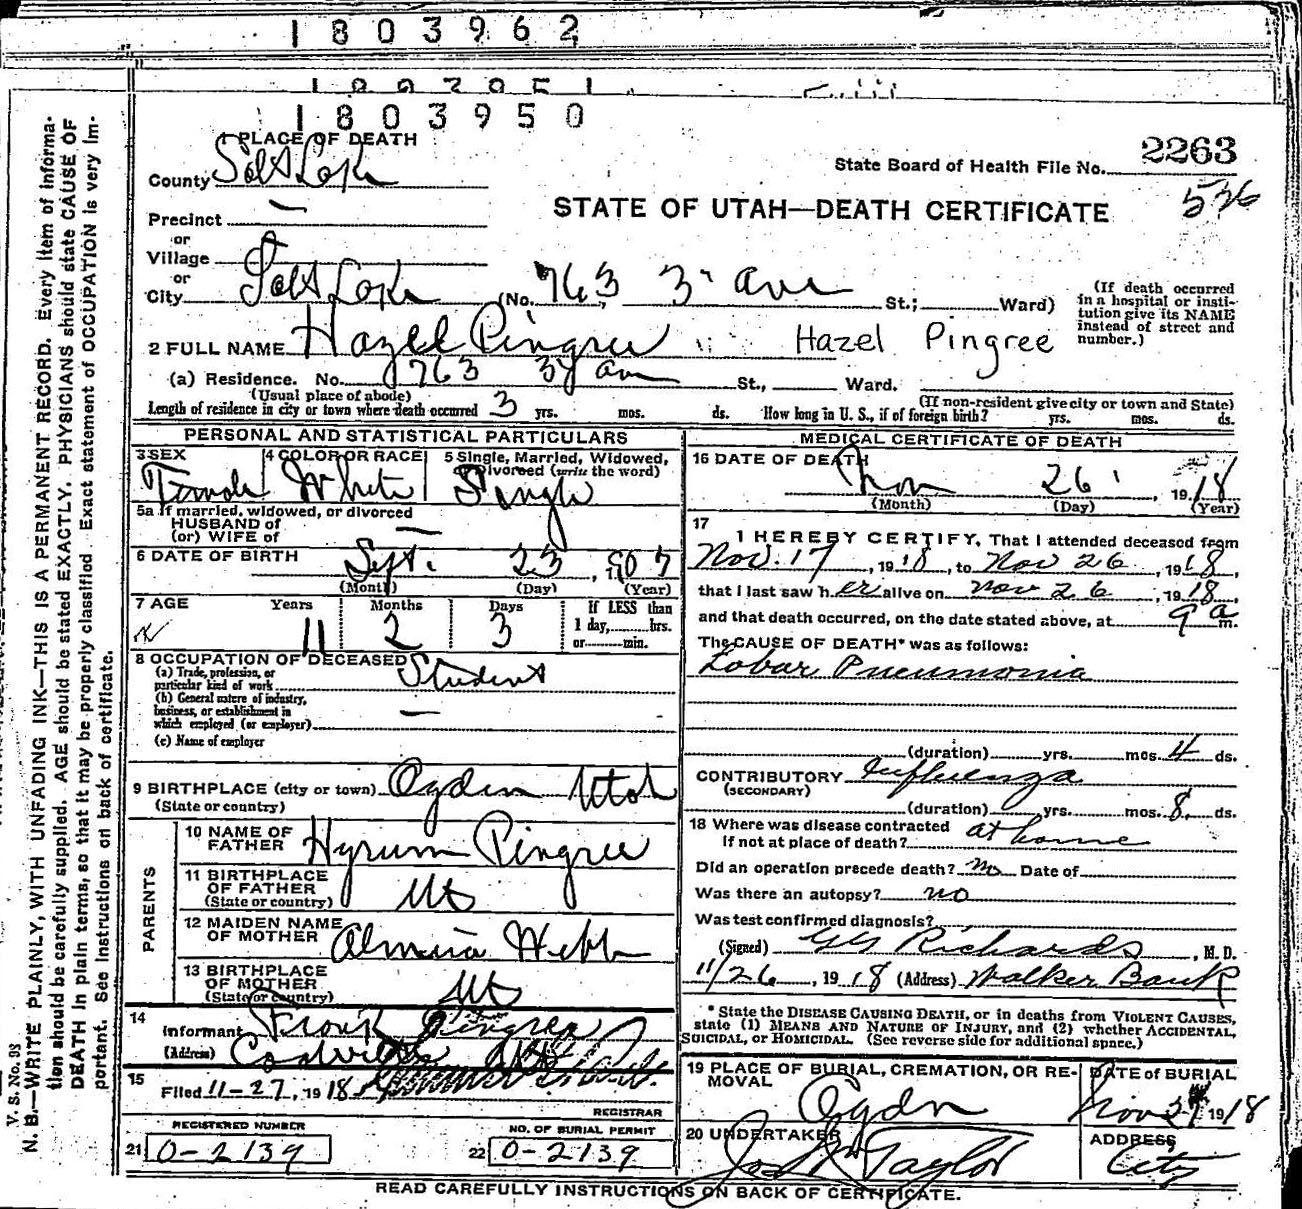 1803962
1803950
1 PLACE OF DEATH
County Salt Lake
State Board of Health File No. 2263
STATE OF UTAH—DEATH CERTIFICATE
Precinct —
or
Village
or
City Salt Lake (No. 763 3rd Ave St.; Ward)
(If death occurred in a hospital or insti-
tution give its NAME instead of street and number.)
2 FULL NAME Hazel Pingree Hazel Pingree
(a) Residence. No. 763 3rd ave St., Ward.
(Usual place of abode) (If non-resident give city or town and State)
Length of residence in city or town where death occurred 3 yrs. mos. ds. How long in U. S., if of foreign birth? yrs. mos. ds.
PERSONAL AND STATISTICAL PARTICULARS
3 SEX Female
4 COLOR OR RACE White
5 Single, Married, Widowed, Divorced (write the word) Single
5a If married, widowed, or divorced
HUSBAND of
(or) WIFE of —
6 DATE OF BIRTH Sept. 23, 1907
(Month) (Day) (Year)
7 AGE Years Months Days If LESS than
11 2 3 1 day, hrs.
or min.
8 OCCUPATION OF DECEASED Student
(a) Trade, profession, or
particular kind of work
(b) General nature of industry,
business, or establishment in —
which employed (or employer)
(c) Name of employer
9 BIRTHPLACE (city or town) Ogden Utah
(State or country)
PARENTS
10 NAME OF FATHER Hyrum Pingree
11 BIRTHPLACE OF FATHER Ut
(State or country)
12 MAIDEN NAME OF MOTHER Almina Webb
13 BIRTHPLACE OF MOTHER Ut
(State or country)
14
Informant Frank Pingree
(Address) Coalville
15
Filed 11-27, 1918
REGISTRAR
REGISTERED NUMBER
21 0-2139
NO. OF BURIAL PERMIT
22 0-2139
MEDICAL CERTIFICATE OF DEATH
16 DATE OF DEATH Nov 26, 1918
(Month) (Day) (Year)
17
I HEREBY CERTIFY, That I attended deceased from
Nov. 17, 1918, to Nov 26, 1918,
that I last saw her alive on Nov 26, 1918,
and that death occurred, on the date stated above, at 9 a m.
The CAUSE OF DEATH* was as follows:
Lobar Pneumonia
(duration) yrs. mos. 4 ds.
CONTRIBUTORY Influenza
(SECONDARY)
(duration) yrs. mos. 8 ds.
18 Where was disease contracted at home
if not at place of death?
Did an operation precede death? no Date of
Was there an autopsy? no
Was test confirmed diagnosis?
(Signed) G G Richards, M. D.
11/26, 1918 (Address) Walker Bank
* State the DISEASE CAUSING DEATH, or in deaths from VIOLENT CAUSES,
state (1) MEANS AND NATURE OF INJURY, and (2) whether ACCIDENTAL,
SUICIDAL, or HOMICIDAL. (See reverse side for additional space.)
19 PLACE OF BURIAL, CREMATION, OR RE-
MOVAL Ogden
DATE of BURIAL
Nov 27 1918
20 UNDERTAKER Taylor
ADDRESS
City
READ CAREFULLY INSTRUCTIONS ON BACK OF CERTIFICATE.
V. S. No. 38
N. B.—WRITE PLAINLY, WITH UNFADING INK—THIS IS A PERMANENT RECORD. Every item of informa-
tion should be carefully supplied. AGE should be stated EXACTLY. PHYSICIANS should state CAUSE OF
DEATH in plain terms, so that it may be properly classified. Exact statement of OCCUPATION is very im-
portant. See instructions on back of certificate.